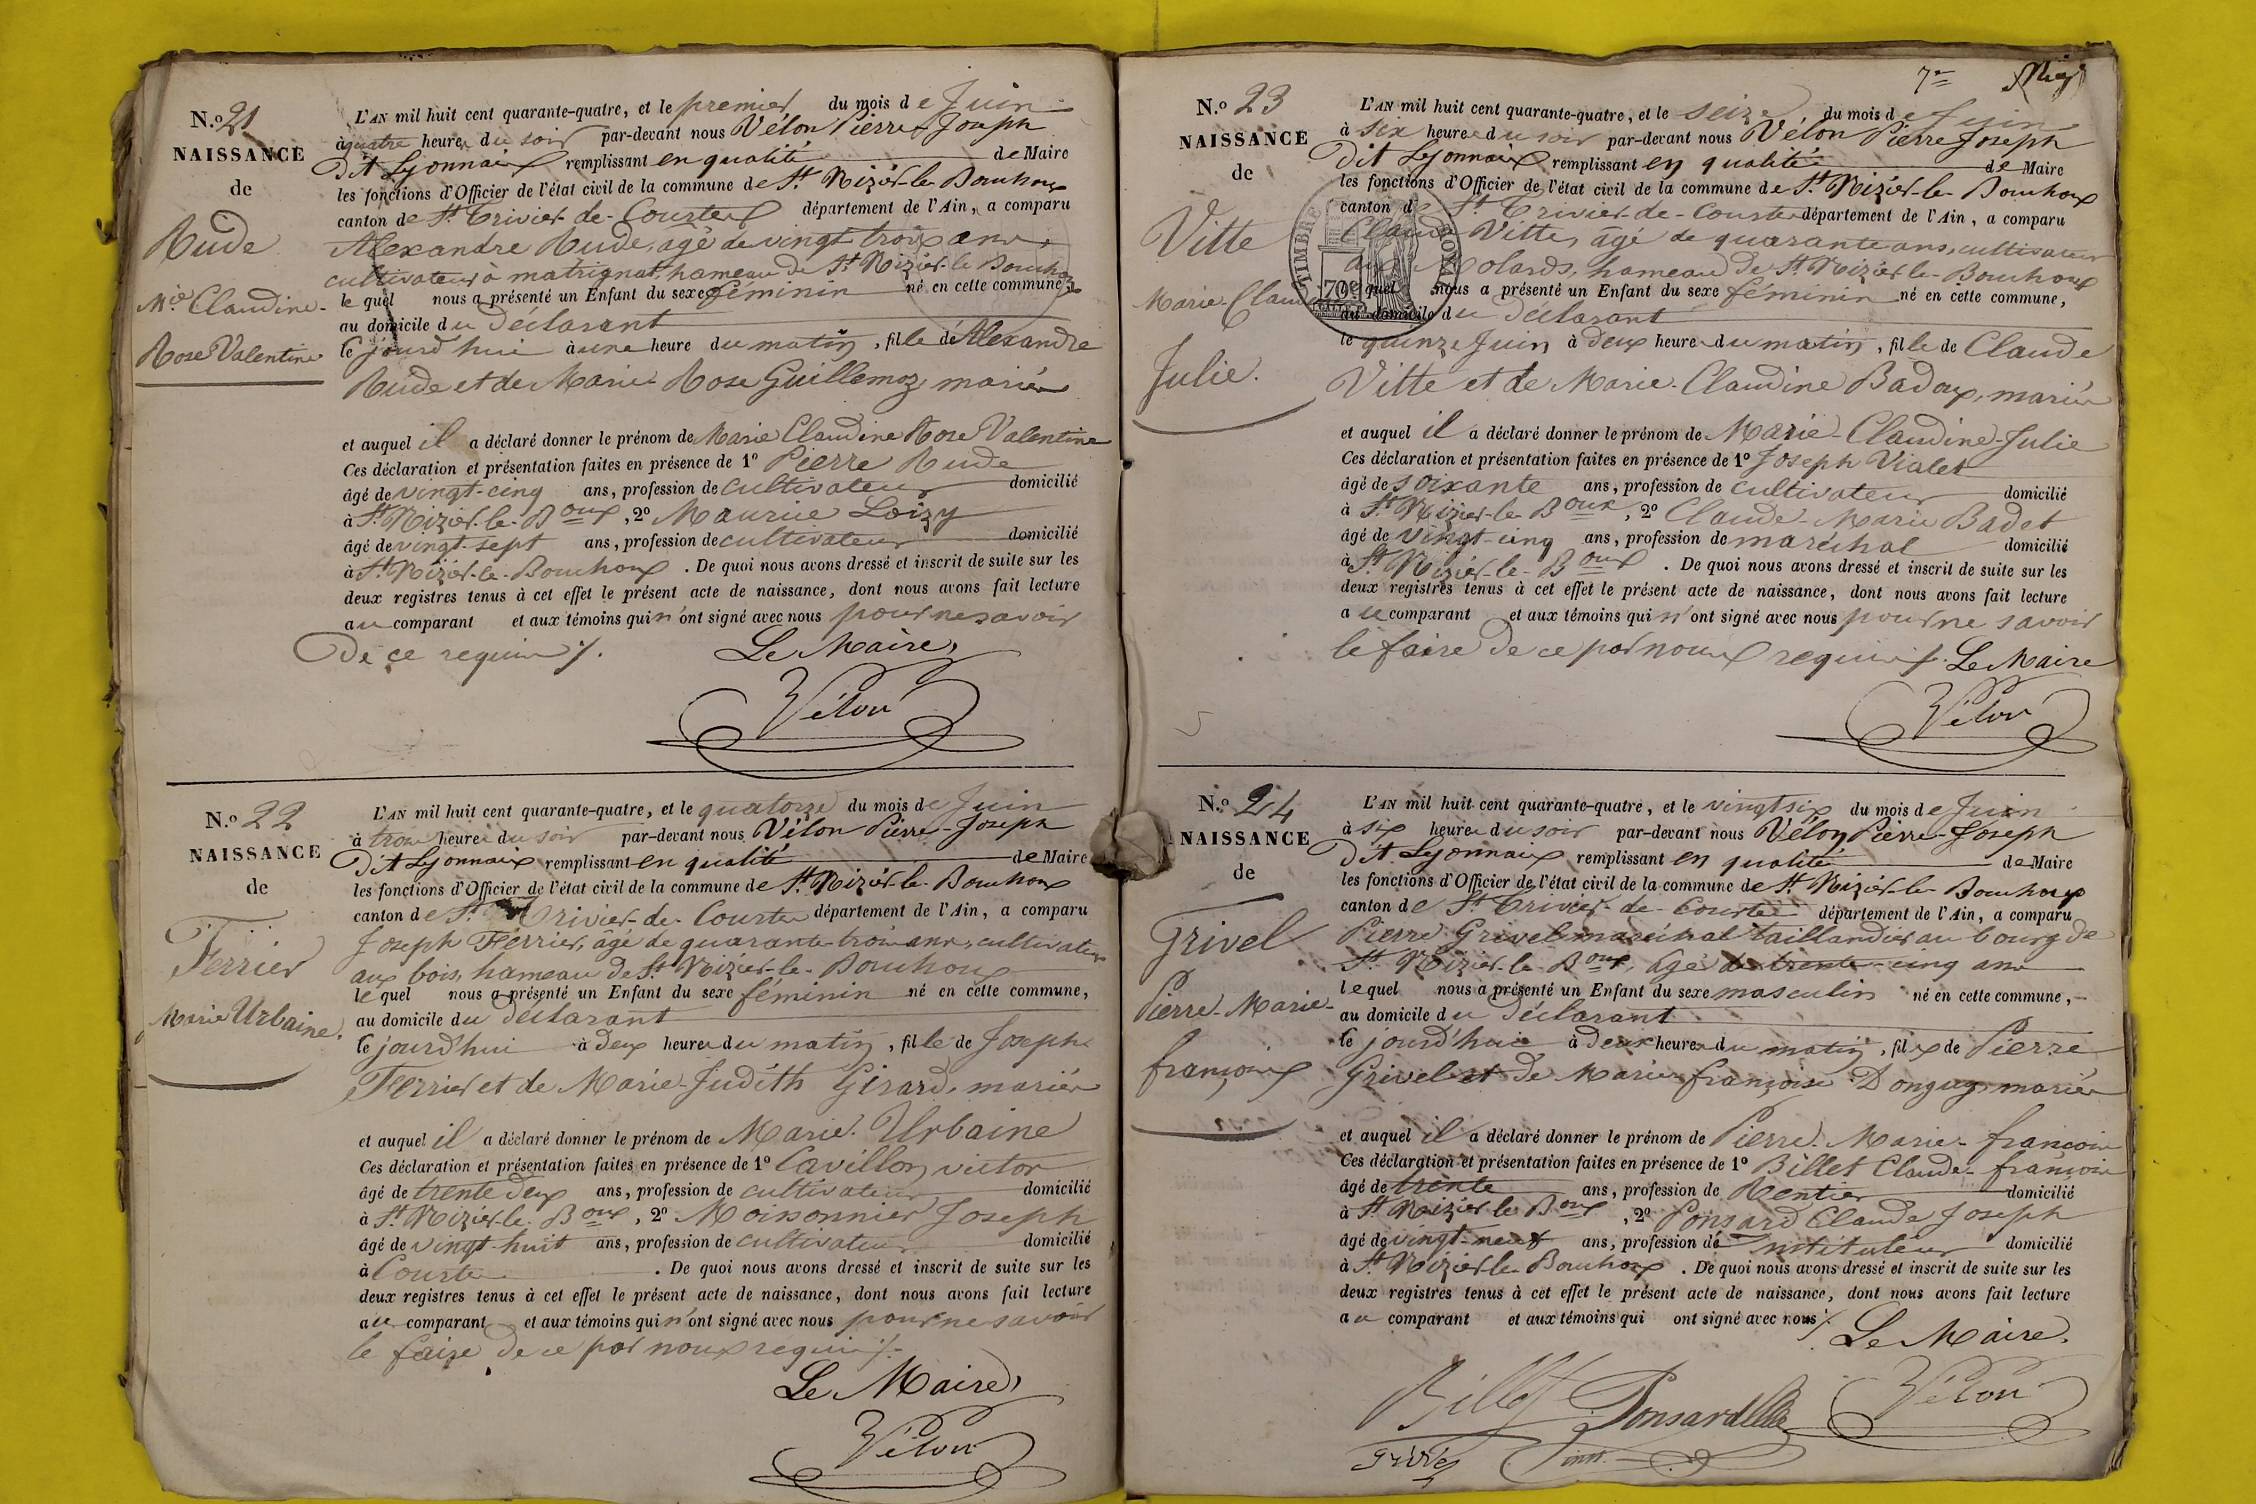 N.o 21
NAISSANCE
de
Rude
Mie Claudine-
Rose Valentine
L'AN mil huit cent quarante-quatre, et le premier du mois de Juin
à quatre heures du soir par-devant nous Vélon Pierre Joseph
Dit Lyonnais remplissant en qualité de Maire
les fonctions d'Officier de l'état civil de la commune de St Nizier-le-Bouchoux
canton de St Trivier-de-Courtes département de l'Ain, a comparu
Alexandre Rude, âgé de vingt trois ans,
cultivateur à matrignat, hameau de St Nizier-le-Bouchoux
le quel nous a présenté un Enfant du sexe féminin né en cette commune,
au domicile du Déclarant
le jourd'hui à une heure du matin, fille de Alexandre
Rude et de Marie-Rose Guillemoz, mariés
et auquel il a déclaré donner le prénom de Marie Claudine Rose Valentine
Ces déclaration et présentation faites en présence de 1o Pierre Rude
âgé de vingt-cinq ans, profession de cultivateur domicilié
à St Nizier-le-Boux, 2o Maurice Loizy
âgé de vingt-sept ans, profession de cultivateur domicilié
à St Nizier-le-Bouchoux. De quoi nous avons dressé et inscrit de suite sur les
deux registres tenus à cet effet le présent acte de naissance, dont nous avons fait lecture
au comparant et aux témoins qui n'ont signé avec nous pour ne savoir
De ce requis /.
Le Maire,
Vélon
N.o 22
NAISSANCE
de
Ferrier
Marie Urbaine.
L'AN mil huit cent quarante-quatre, et le quatorze du mois de Juin
à trois heures du soir par-devant nous Vélon Pierre-Joseph
Dit Lyonnais remplissant en qualité de Maire
les fonctions d'Officier de l'état civil de la commune de St Nizier-le-Bouchoux
canton de St Trivier-de-Courtes département de l'Ain, a comparu
Joseph Ferrier, âgé de quarante-trois ans, cultivateur
aux bois, hameau de St Nizier-le-Bouchoux
le quel nous a présenté un Enfant du sexe féminin né en cette commune,
au domicile du Déclarant
le jourd'hui à deux heures du matin, fille de Joseph
Ferrier et de Marie-Judith Girard, mariés
et auquel il a déclaré donner le prénom de Marie-Urbaine
Ces déclaration et présentation faites en présence de 1o Cavillon victor
âgé de trente deux ans, profession de cultivateur domicilié
à St Nizier-le-Boux, 2o Moissonnier Joseph
âgé de vingt-huit ans, profession de cultivateur domicilié
à Courtes. De quoi nous avons dressé et inscrit de suite sur les
deux registres tenus à cet effet le présent acte de naissance, dont nous avons fait lecture
au comparant et aux témoins qui n'ont signé avec nous pour ne savoir
le faire de ce par nous requis /.
Le Maire,
Vélon
7e
N.o 23
NAISSANCE
de
Vitte
Marie-Claudine
Julie.
TIMBRE ROYAL
70c
L'AN mil huit cent quarante-quatre, et le seize du mois de Juin
à six heures du soir par-devant nous Vélon Pierre Joseph
Dit Lyonnais remplissant en qualité de Maire
les fonctions d'Officier de l'état civil de la commune de St Nizier-le-Bouchoux
canton d St Trivier-de-Courtes département de l'Ain, a comparu
Claude Vitte, âgé de quarante ans, cultivateur
aux Molards, hameau de St Nizier-le-Bouchoux
le quel nous a présenté un Enfant du sexe féminin né en cette commune,
au domicile du Déclarant
le quinze Juin à deux heures du matin, fille de Claude
Vitte et de Marie-Claudine Badoux, mariés
et auquel il a déclaré donner le prénom de Marie-Claudine-Julie
Ces déclaration et présentation faites en présence de 1o Joseph Vialet
âgé de soixante ans, profession de cultivateur domicilié
à St Nizier-le-Boux, 2o Claude-Marie Badet
âgé de vingt-cinq ans, profession de maréchal domicilié
à St Nizier-le-Boux. De quoi nous avons dressé et inscrit de suite sur les
deux registres tenus à cet effet le présent acte de naissance, dont nous avons fait lecture
au comparant et aux témoins qui n'ont signé avec nous pour ne savoir
le faire de ce par nous requis /. Le Maire
Vélon
N.o 24
NAISSANCE
de
Grivel
Pierre-Marie-
françois
L'AN mil huit cent quarante-quatre, et le vingt six du mois de Juin
à six heures du soir par-devant nous Vélon Pierre-Joseph
Dit Lyonnais remplissant en qualité de Maire
les fonctions d'Officier de l'état civil de la commune de St Nizier-le-Bouchoux
canton de St Trivier-de-Courtes département de l'Ain, a comparu
Pierre Grivel maréchal taillandier au bourg de
St Nizier-le-Boux, âgé de trente-cinq ans
le quel nous a présenté un Enfant du sexe masculin né en cette commune,
au domicile du Déclarant
le jourd'hui à deux heures du matin, fils de Pierre
Grivel et de Marie-françoise Donguy, mariés
et auquel il a déclaré donner le prénom de Pierre-Marie-françois
Ces déclaration et présentation faites en présence de 1o Billet Claude-françois
âgé de trente ans, profession de Rentier domicilié
à St Nizier-le-Boux, 2o Ponsard Claude Joseph
âgé de vingt-neuf ans, profession de Instituteur domicilié
à St Nizier-le-Bouchoux. De quoi nous avons dressé et inscrit de suite sur les
deux registres tenus à cet effet le présent acte de naissance, dont nous avons fait lecture
au comparant et aux témoins qui ont signé avec nous /.
Le Maire.
Billet Ponsard Vélon